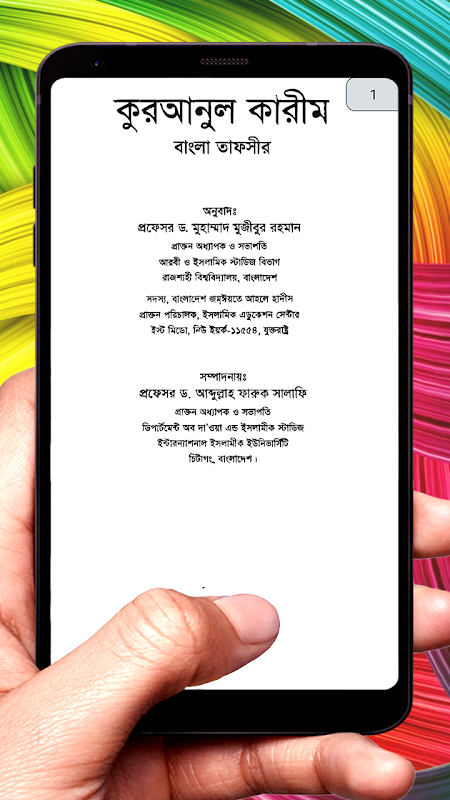 1
কুরআনুল কারীম
বাংলা তাফসীর
অনুবাদঃ
প্রফেসর ড. মুহাম্মাদ মুজীবুর রহমান
প্রাক্তন অধ্যাপক ও সভাপতি
আরবী ও ইসলামিক স্টাডিজ বিভাগ
রাজশাহী বিশ্ববিদ্যালয়, বাংলাদেশ
সদস্য, বাংলাদেশ জমঈয়তে আহলে হাদীস
প্রাক্তন পরিচালক, ইসলামিক এডুকেশন সেন্টার
ইস্ট মিডো, নিউ ইয়র্ক-১১৫৫৪, যুক্তরাষ্ট্র
সম্পাদনায়ঃ
প্রফেসর ড. আব্দুল্লাহ ফারুক সালাফি
প্রাক্তন অধ্যাপক ও সভাপতি
ডিপার্টমেন্ট অব দা'ওয়া এন্ড ইসলামীক স্টাডিজ
ইন্টারন্যাশনাল ইসলামীক ইউনিভার্সিটি
চিটাগং, বাংলাদেশ।